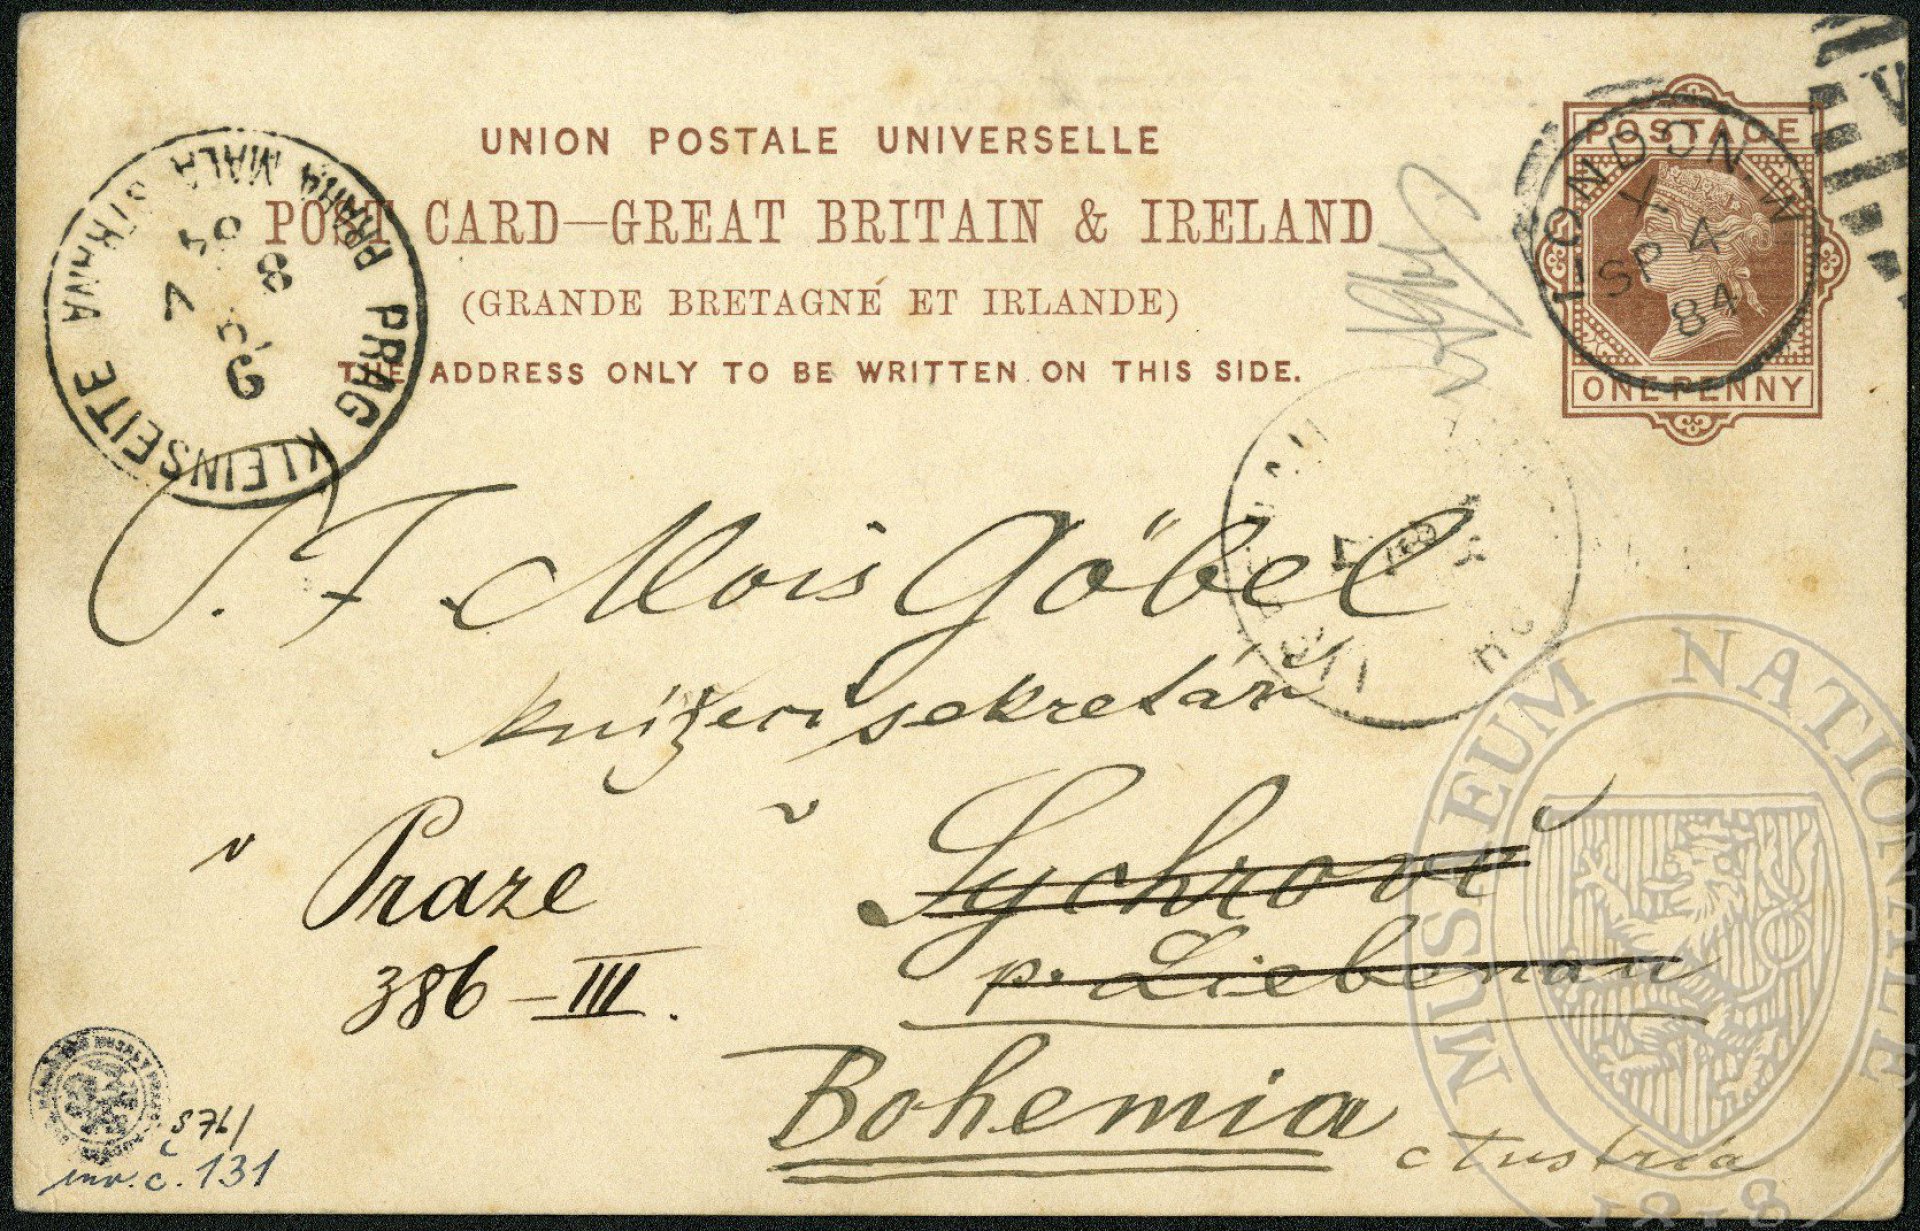 UNION POSTALE UNIVERSELLE
POST CARD—GREAT BRITAIN & IRELAND
(GRANDE BRETAGNE ET IRLANDE)
THE ADDRESS ONLY TO BE WRITTEN ON THIS SIDE.
POSTAGE
ONE PENNY
LONDON·W
X
SP 4
84
PRAG KLEINSEITE
PRAHA MALÁ STRANA
Alois Göbel
knížecí sekretář
v
Sychrově
p. Liebenau
v Praze
386–III.
Bohemia
Austria
S 76/
inv. č. 131
MUSEUM NATIONALE
1818